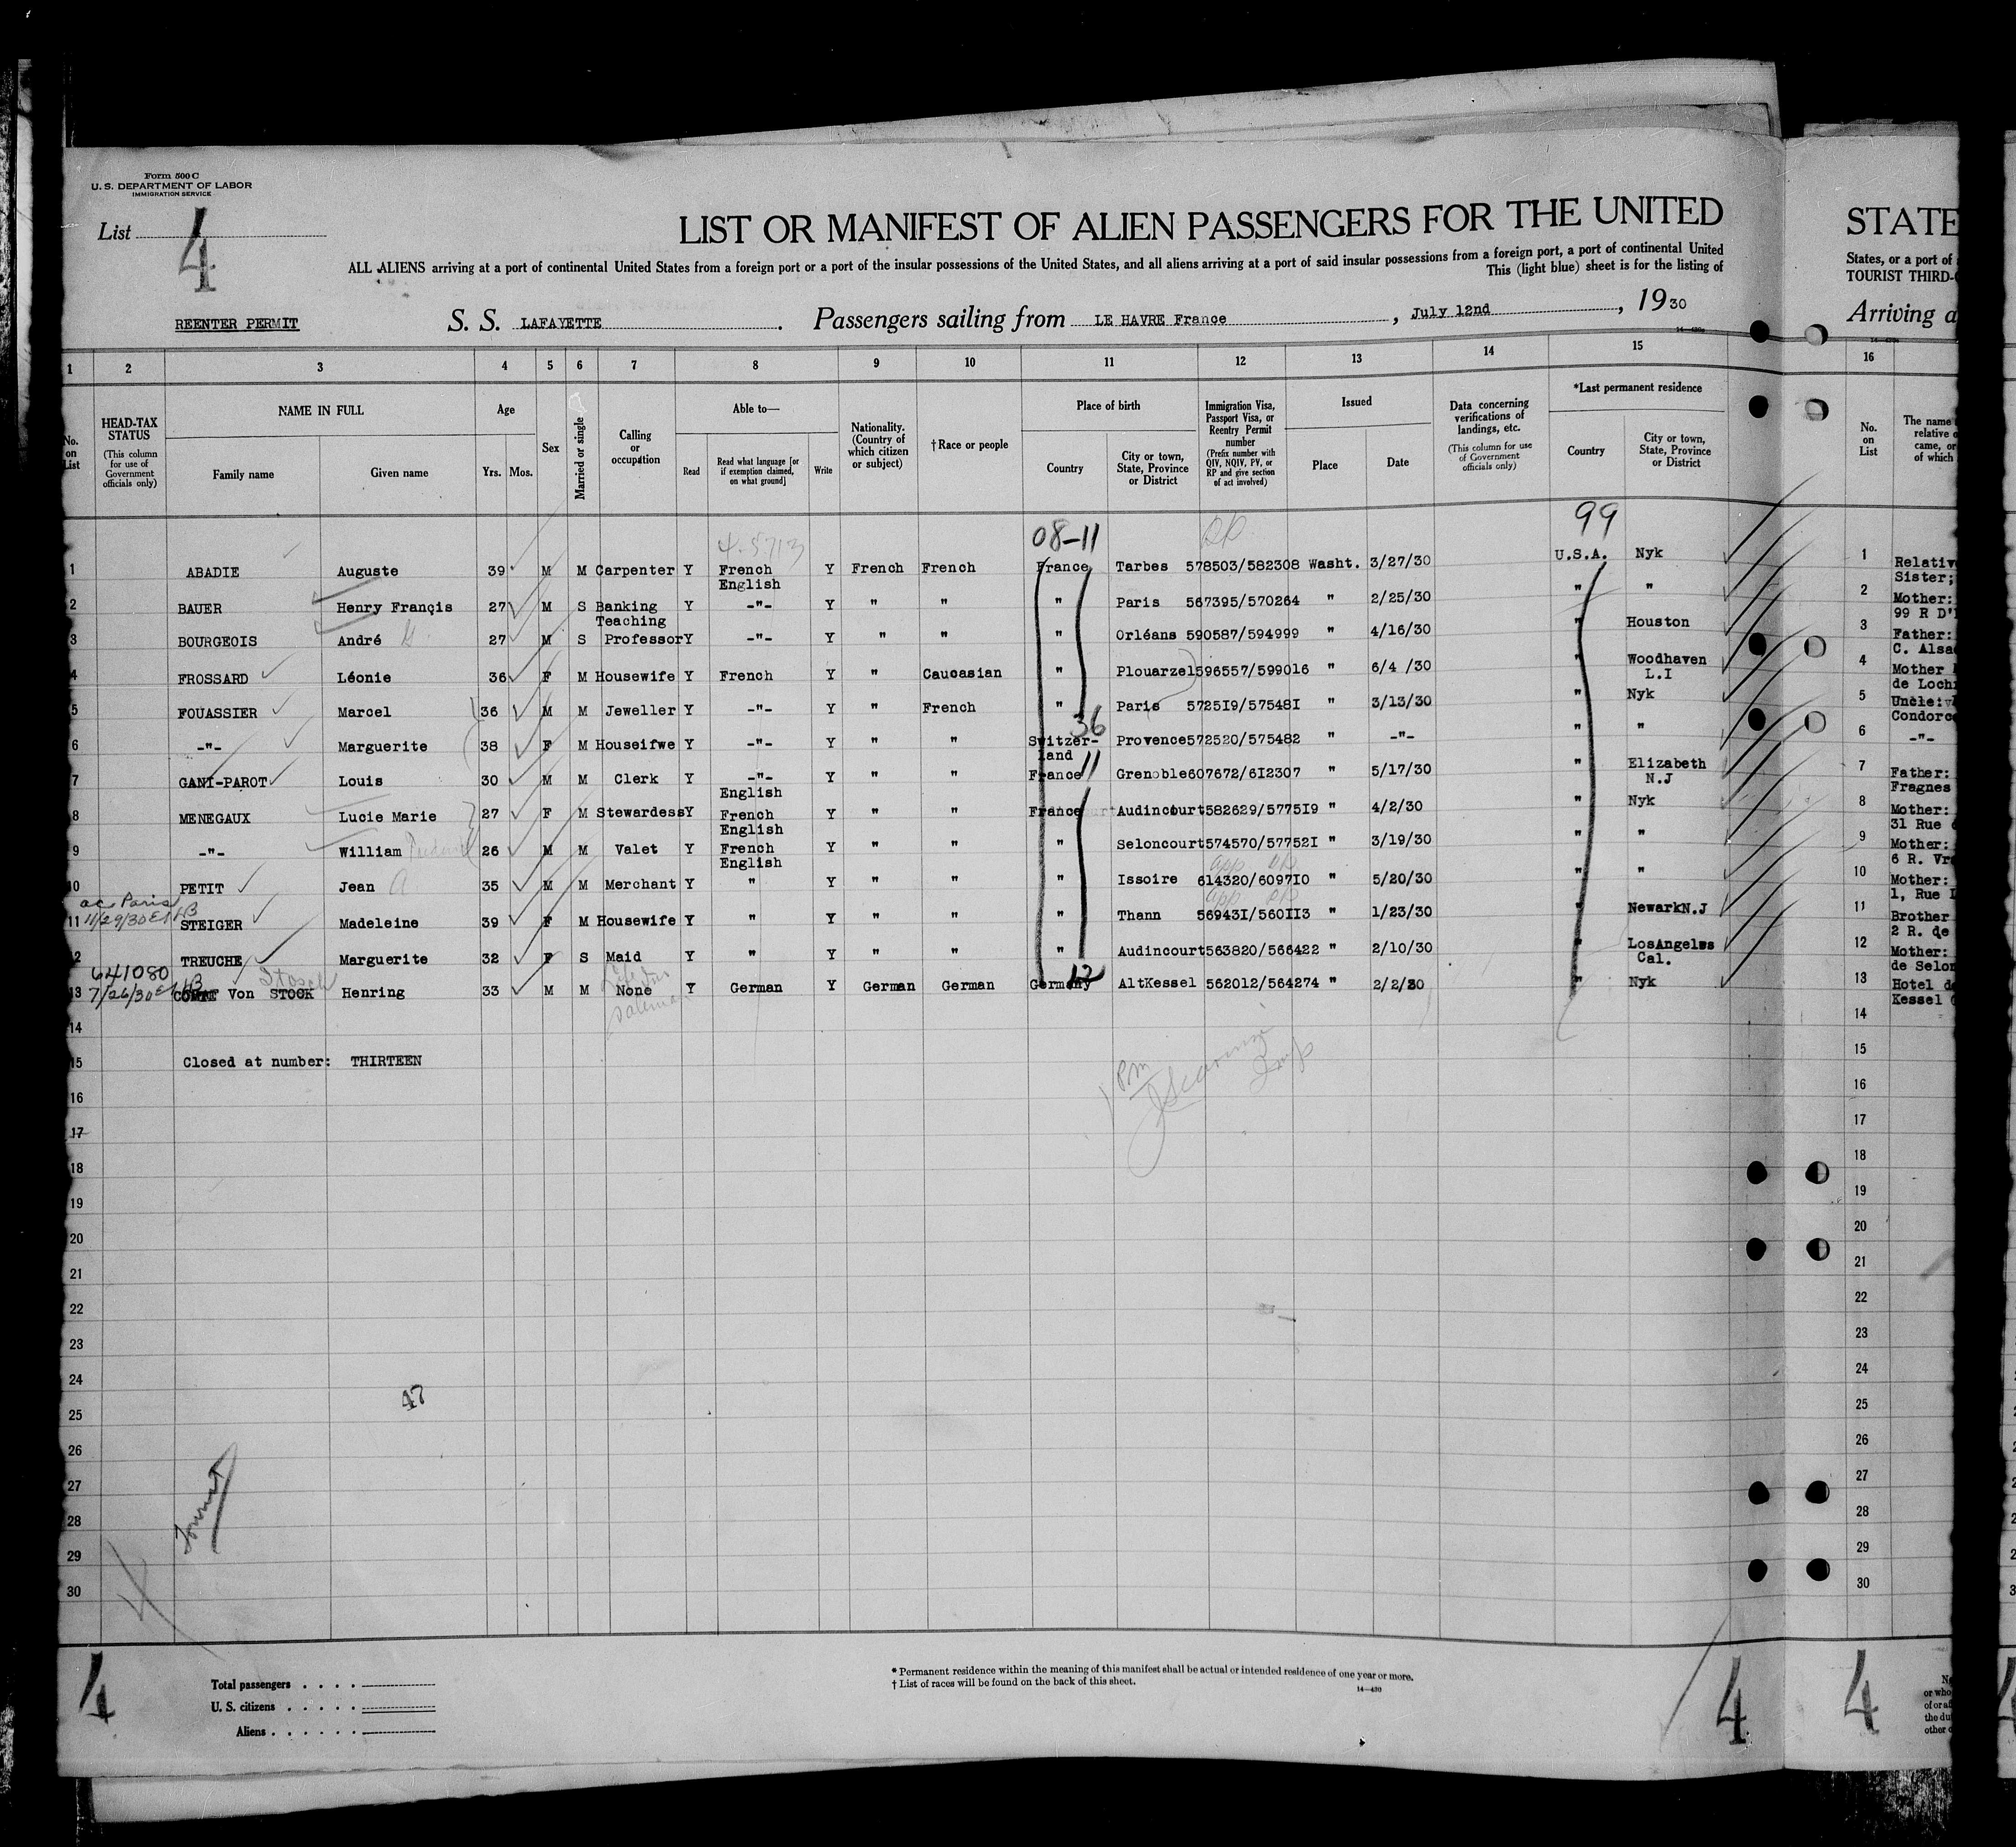 Form 500 C
U. S. DEPARTMENT OF LABOR
IMMIGRATION SERVICE
List 4
LIST OR MANIFEST OF ALIEN PASSENGERS FOR THE UNITED
ALL ALIENS arriving at a port of continental United States from a foreign port or a port of the insular possessions of the United States, and all aliens arriving at a port of said insular possessions from a foreign port, a port of continental United
This (light blue) sheet is for the listing of
REENTER PERMIT S. S. LAFAYETTE. Passengers sailing from LE HAVRE France, July 12nd, 1930
14—430a
1 2 3 4 5 6 7 8 9 10 11 12 13 14 15
No. on List
HEAD-TAX STATUS
(This column for use of Government officials only)
NAME IN FULL
Family name Given name
Age
Yrs. Mos.
Sex
Married or single
Calling or occupation
Able to—
Read
Read what language [or if exemption claimed, on what ground]
Write
Nationality. (Country of which citizen or subject)
†Race or people
Place of birth
Country
City or town, State, Province or District
Immigration Visa, Passport Visa, or Reentry Permit number
(Prefix number with QIV, NQIV, PV, or RP and give section of act involved)
Issued
Place Date
Data concerning verifications of landings, etc.
(This column for use of Government officials only)
*Last permanent residence
Country
City or town, State, Province or District
4-5713 08-11 99
1 ABADIE Auguste 39 M M Carpenter Y French English Y French French France Tarbes 578503/582308 Washt. 3/27/30 U.S.A. Nyk
2 BAUER Henry Françis 27 M S Banking Y -"- Y " " " Paris 567395/570264 " 2/25/30 " "
3 BOURGEOIS André 27 M S Teaching Professor Y -"- Y " " " Orléans 590587/594999 " 4/16/30 Houston
4 FROSSARD Léonie 36 F M Housewife Y French Y " Caucasian " Plouarzel 596557/599016 " 6/4 /30 " Woodhaven L.I
5 FOUASSIER Marcel 36 M M Jeweller Y -"- Y " French " Paris 5725I9/57548I " 3/13/30 " Nyk
36
6 -"- Marguerite 38 F M Houseifwe Y -"- Y " " Switzer-land Provence 572520/575482 " -"- " "
11
7 GANI-PAROT Louis 30 M M Clerk Y -"- Y " " France Grenoble 607672/6I2307 " 5/17/30 " Elizabeth N.J
8 MENEGAUX Lucie Marie 27 F M Stewardess Y English French Y " " France Audincourt 582629/5775I9 " 4/2/30 " Nyk
9 -"- William 26 M M Valet Y English French Y " " " Seloncourt 574570/57752I " 3/19/30 " "
10 PETIT Jean 35 M M Merchant Y English " Y " " " Issoire 614320/6097I0 " 5/20/30 " "
ac Paris
11/29/30
11 STEIGER Madeleine 39 F M Housewife Y " Y " " " Thann 56943I/560II3 " 1/23/30 " NewarkN.J
12 TREUCHE Marguerite 32 F S Maid Y " Y " " " Audincourt 563820/566422 " 2/10/30 " LosAngeles Cal.
641080
7/26/30
Stosch
12
13 COMTE Von STOCK Henring 33 M M None Y German Y German German Germany AltKessel 562012/564274 " 2/2/30 " Nyk
salesman
14
15 Closed at number: THIRTEEN
16
17
18
19
20
21
22
23
24
25
47
26
27
28
29
30
4
Total passengers
U. S. citizens
Aliens
* Permanent residence within the meaning of this manifest shall be actual or intended residence of one year or more.
† List of races will be found on the back of this sheet.
14—430
4
STATE
States, or a port of
TOURIST THIRD-
Arriving a
16
No. on List
The name
relative o
came, or
of which
1 Relativ
Sister;
2 Mother:
99 R D'
3 Father:
C. Alsa
4 Mother
de Loch
5 Uncle:
Condorc
6 -"-
7 Father:
Fragnes
8 Mother:
31 Rue
9 Mother:
6 R. Vr
10 Mother:
1, Rue
11 Brother
2 R. de
12 Mother:
de Selon
13 Hotel d
Kessel
14
15
16
17
18
19
20
21
22
23
24
25
26
27
28
29
30
4
or who
of or af
the du
other